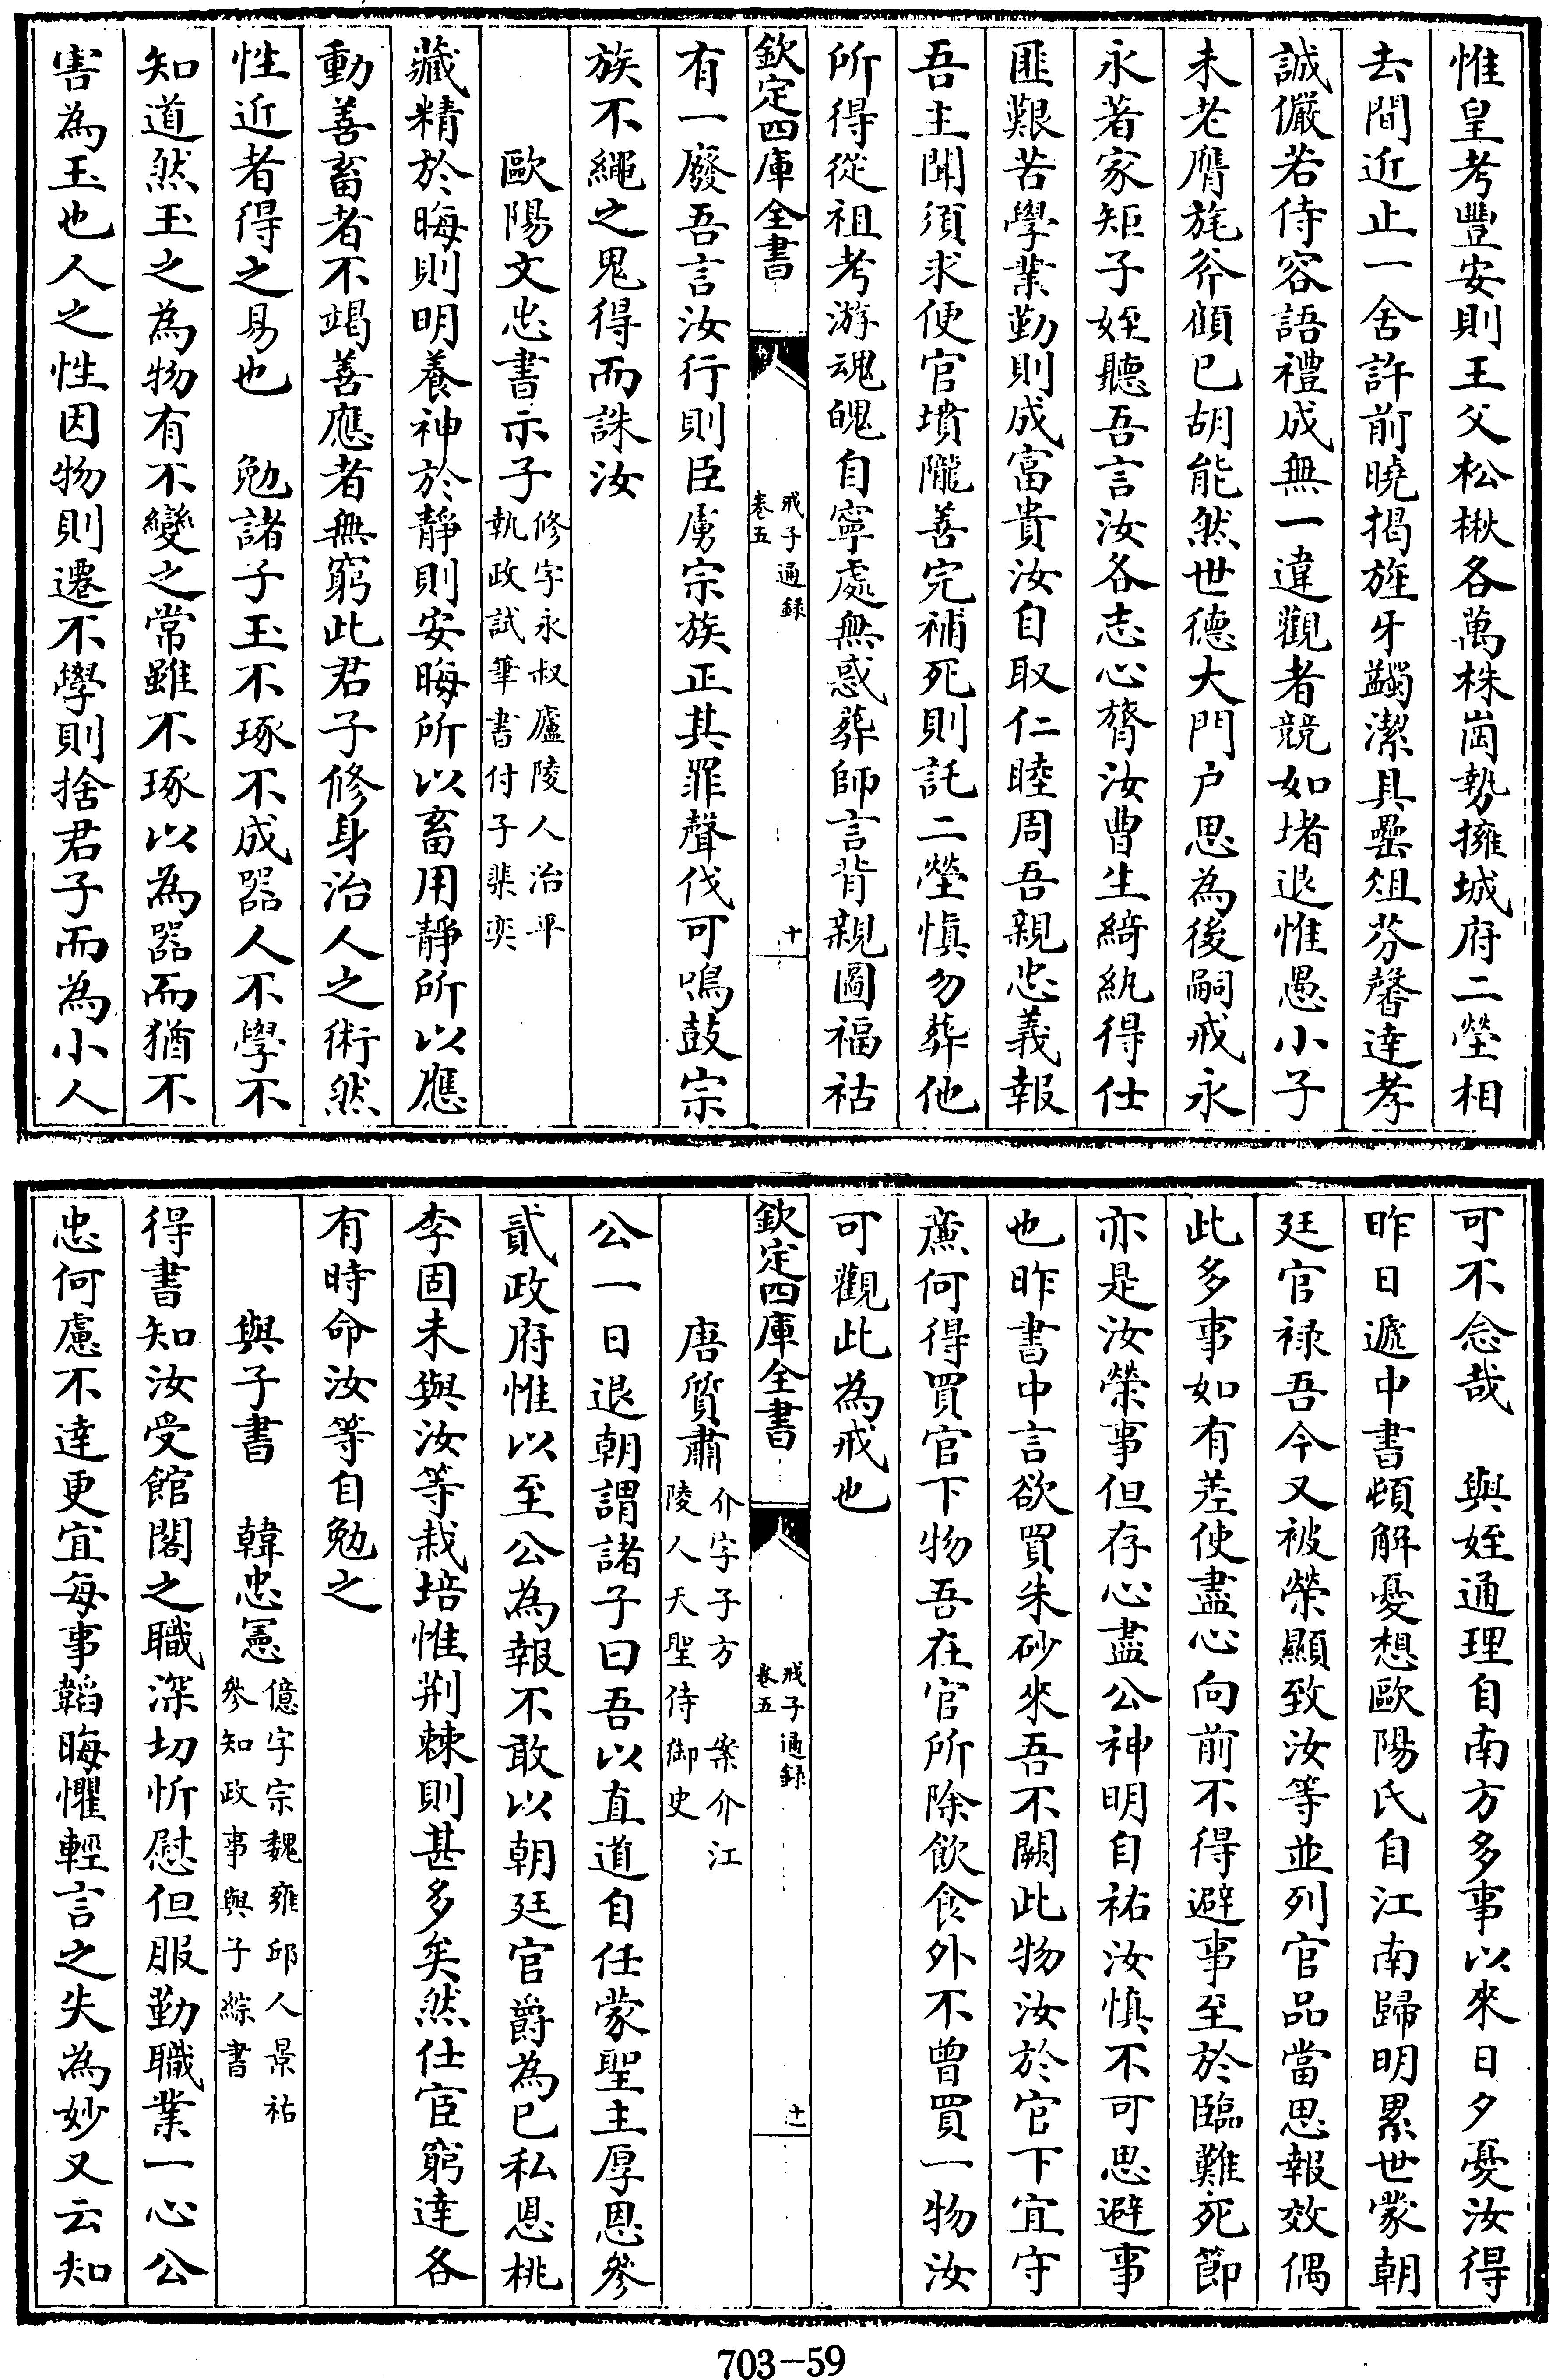 惟皇考豐安則王父松楸各萬株崗勢擁城府二塋相
去間近止一舍許前曉揭旌牙蠲潔具罍俎芬馨達孝
誠儼若侍容語禮成無一違觀者競如堵退惟愚小子
未老膺旄斧顧已胡能然世德大門户思為後嗣戒永
永著家矩子姪聽吾言汝各志心膂汝曹生綺紈得仕
匪艱苦學業勤則成富貴汝自取仁睦周吾親忠義報
吾主聞須求便官墳隴善完補死則託二塋慎勿葬他
所得從祖考游魂魄自寧處無惑葬師言背親圖福祜
欽定四庫全書
戒子通録
卷五
十
有一廢吾言汝行則臣虜宗族正其罪聲伐可鳴鼓宗
族不繩之鬼得而誅汝
歐陽文忠書示子修字永叔廬陵人治平
執政試筆書付子棐奕
藏精於晦則明養神於靜則安晦所以畜用靜所以應
動善畜者不竭善應者無窮此君子修身治人之術然
性近者得之易也　勉諸子玉不琢不成器人不學不
知道然玉之為物有不變之常雖不琢以為器而猶不
害為玉也人之性因物則遷不學則捨君子而為小人
可不念哉　與姪通理自南方多事以來日夕憂汝得
昨日遞中書頓解憂想歐陽氏自江南歸明累世蒙朝
廷官禄吾今又被榮顯致汝等並列官品當思報效偶
此多事如有差使盡心向前不得避事至於臨難死節
亦是汝榮事但存心盡公神明自祐汝慎不可思避事
也昨書中言欲買朱砂來吾不闕此物汝於官下宜守
廉何得買官下物吾在官所除飲食外不曾買一物汝
可觀此為戒也
欽定四庫全書
戒子通録
卷五
十一
唐質肅介字子方　案介江
陵人天聖侍御史
公一日退朝謂諸子曰吾以直道自任蒙聖主厚恩參
貳政府惟以至公為報不敢以朝廷官爵為已私恩桃
李固未與汝等栽培惟荆棘則甚多矣然仕宦窮達各
有時命汝等自勉之
與子書　韓忠憲億字宗魏雍邱人景祐
參知政事與子綜書
得書知汝受館閣之職深切忻慰但服勤職業一心公
忠何慮不達更宜每事韜晦懼輕言之失為妙又云知
703-59